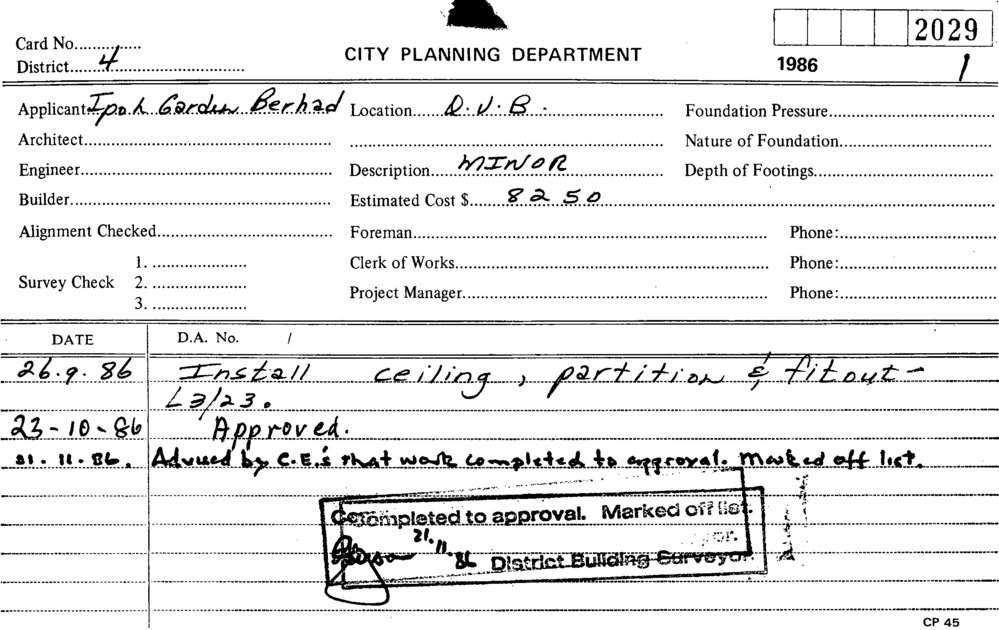 2029
Card No...............
CITY PLANNING DEPARTMENT
District......4...............................
1986 1
Applicant Ipoh Garden Berhad Location......Q.V.B. Foundation Pressure
Architect Nature of Foundation
Engineer Description....MINOR Depth of Footings
Builder Estimated Cost $.......8250
Alignment Checked Foreman Phone:
1. Clerk of Works Phone:
Survey Check 2.
3. Project Manager Phone:
DATE D.A. No. /
26.9.86 Install ceiling, partition & fitout-
L3/23.
23-10-86 Approved.
21.11.86. Advised by C.E.'s that work completed to approval. Marked off list.
Completed to approval. Marked off list.
21.11.86 District Building Surveyor.
CP 45